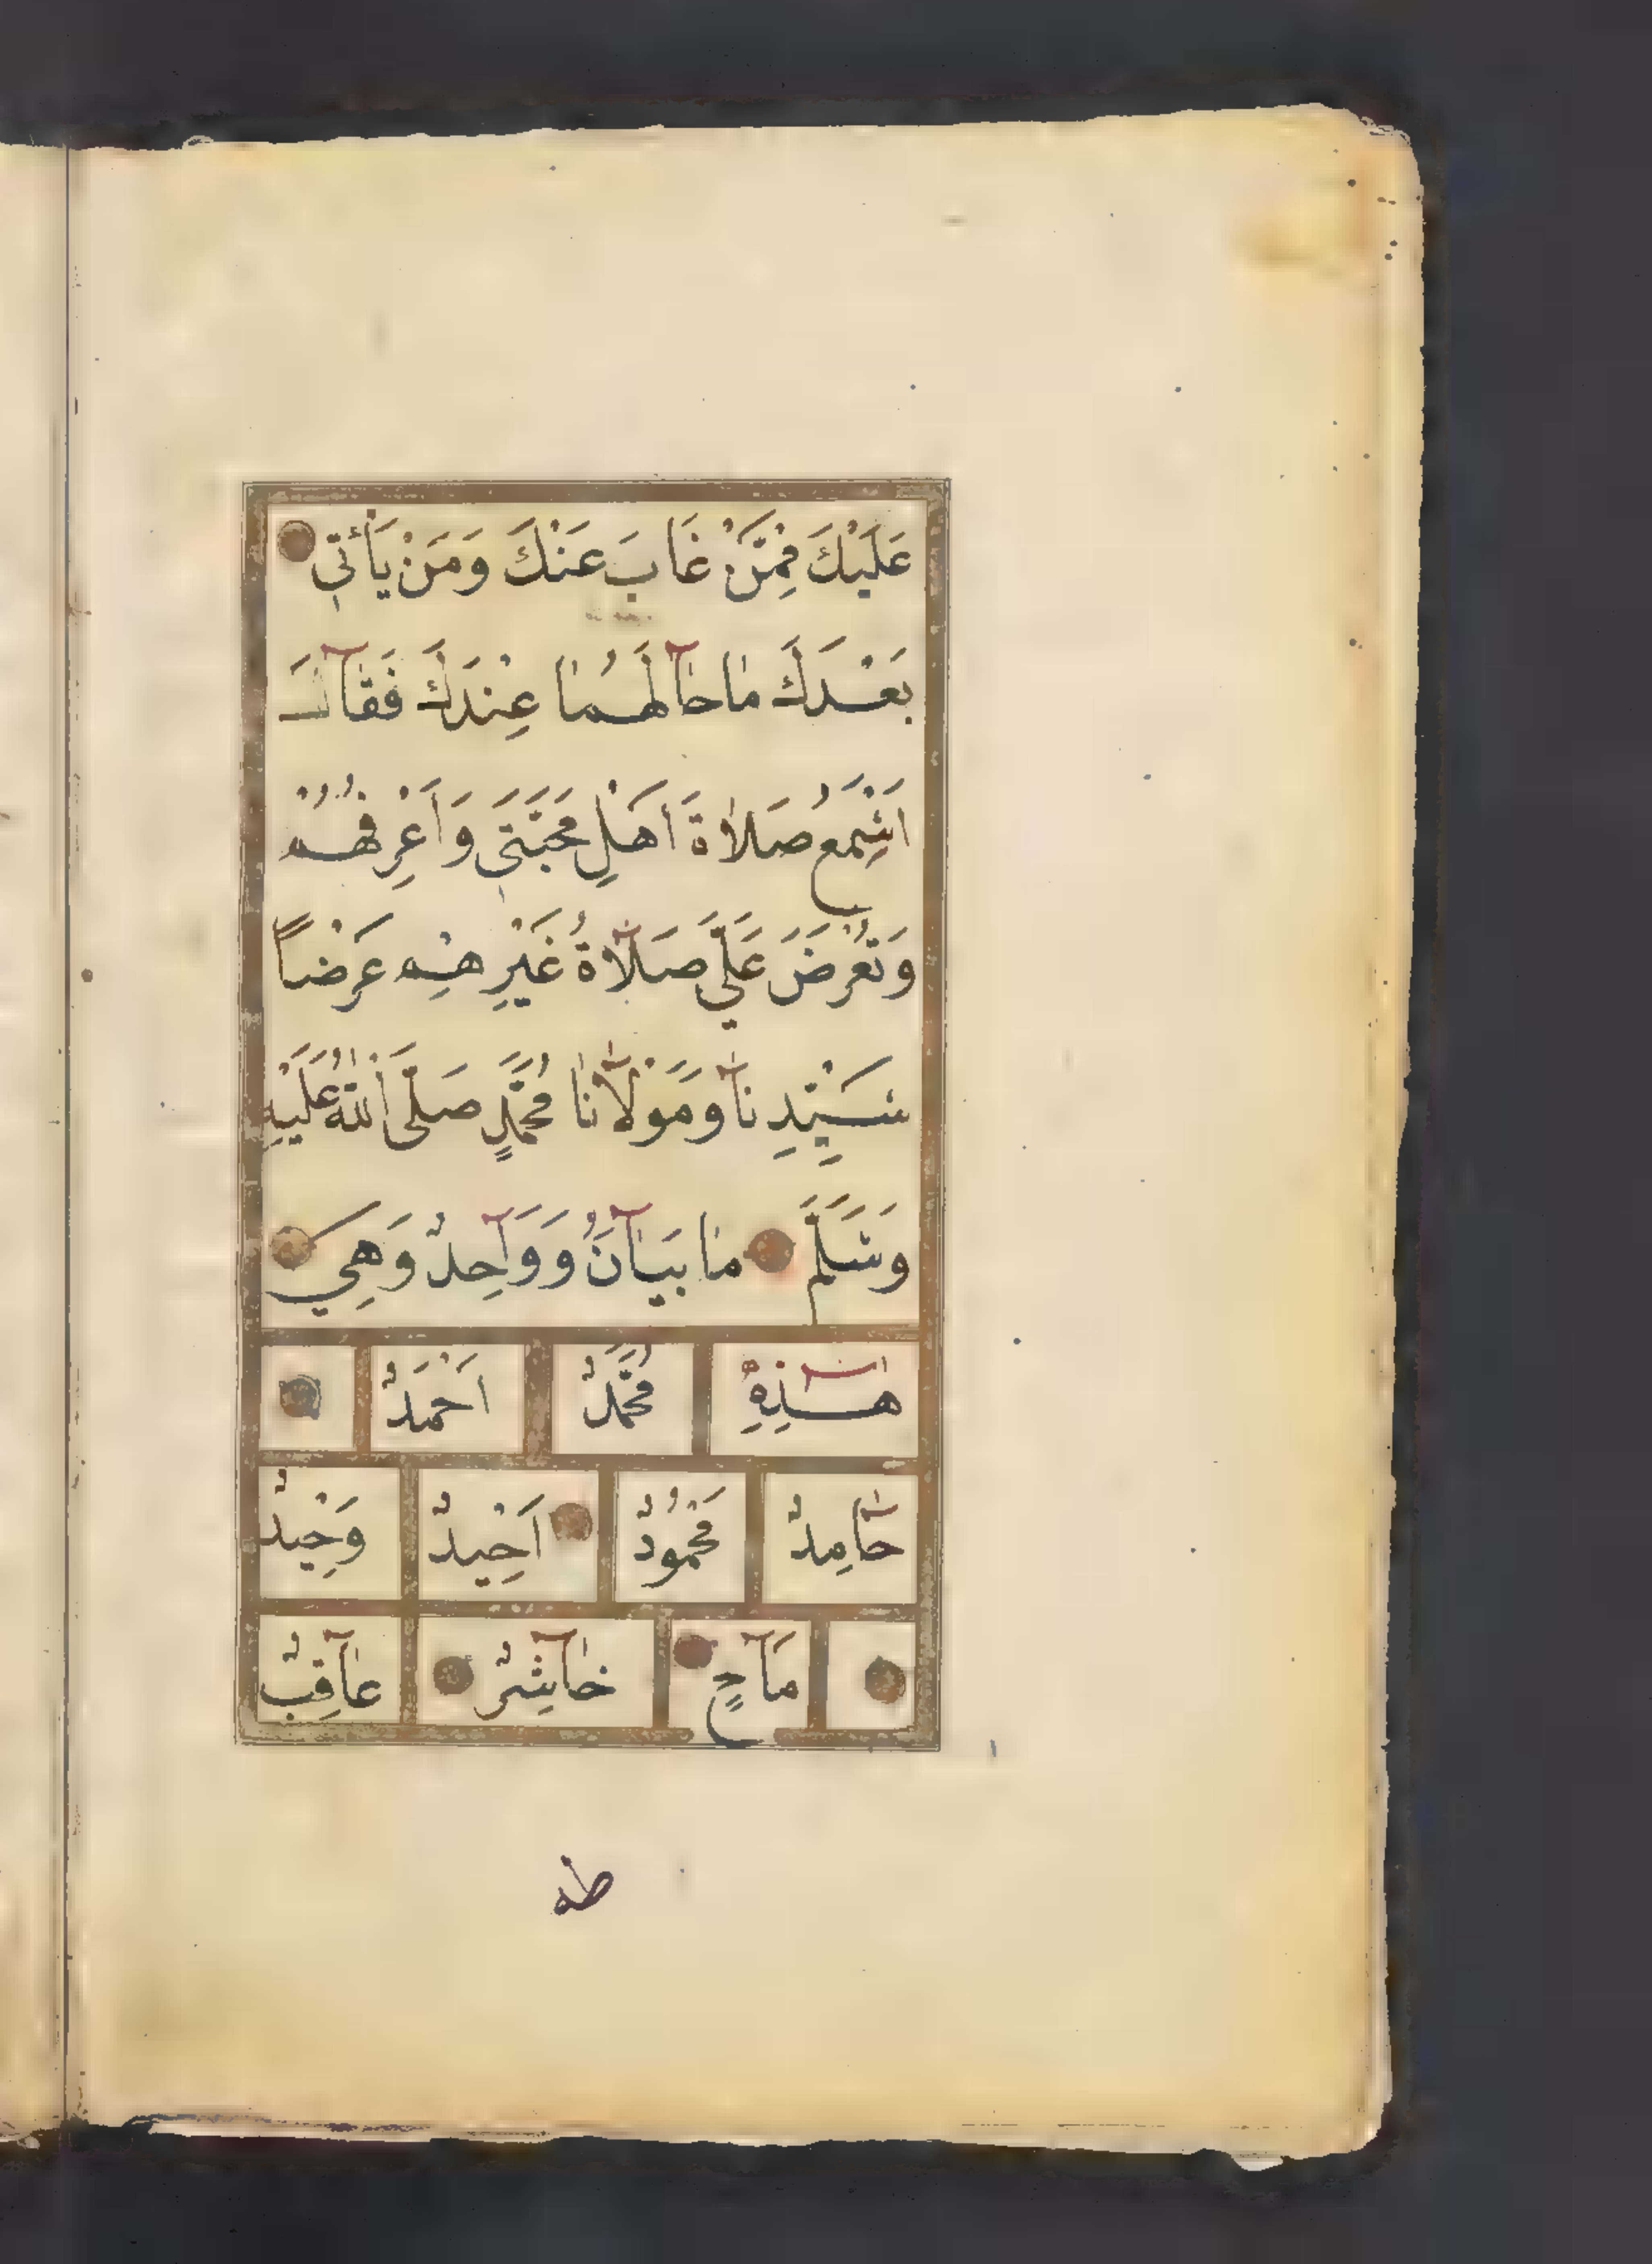 عَلَيْكَ مِمَّنْ غَابَ عَنْكَ وَمَنْ يَأْتِي
بَعْدَكَ مَا حَالُهُمَا عِنْدَكَ فَقَالَ
اَسْمَعُ صَلَاةَ اَهْلِ مَحَبَّتِي وَاَعْرِفُهُمْ
وَتُعْرَضُ عَلَيَّ صَلَاةُ غَيْرِهِمْ عَرْضًا
سَيِّدِنَا وَمَوْلَانَا مُحَمَّدٍ صَلَّى اللّٰهُ عَلَيْهِ
وَسَلَّمَ مِائَتَانِ وَوَاحِدٌ وَهِيَ
هٰذِهِ مُحَمَّدٌ اَحْمَدٌ
حَامِدٌ مَحْمُودٌ اَحِيدٌ وَحِيدٌ
مَاحٍ حَاشِرٌ عَاقِبٌ
طه